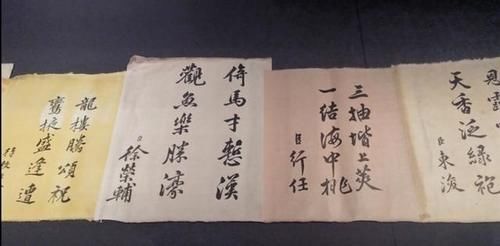 恩
天香泛綠袍
臣東浚
三抽堦上蓂
一結海中桃
臣衍任
倚馬才慙漢
觀魚樂勝濠
臣徐榮輔
龍樓騰頌祝
掖盛逢遭